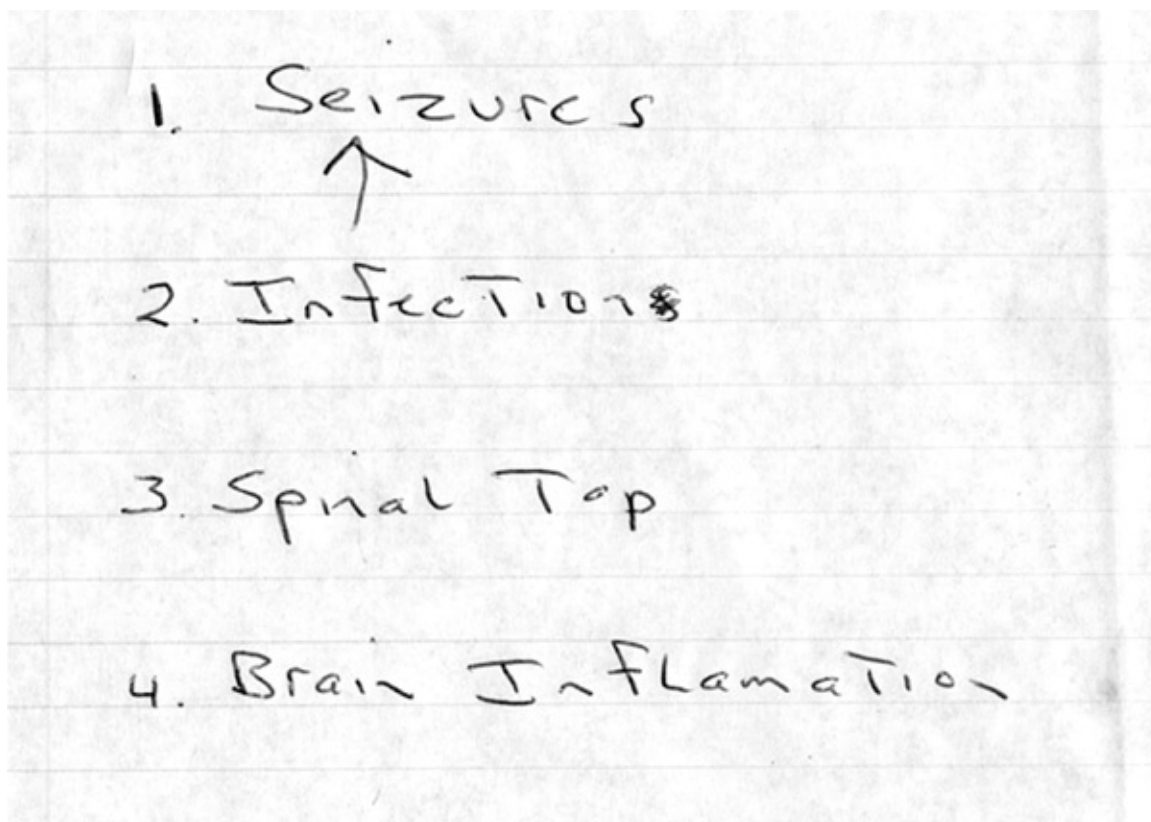 1. Seizures
↑
2. Infections
3. Spinal Tap
4. Brain Inflamation